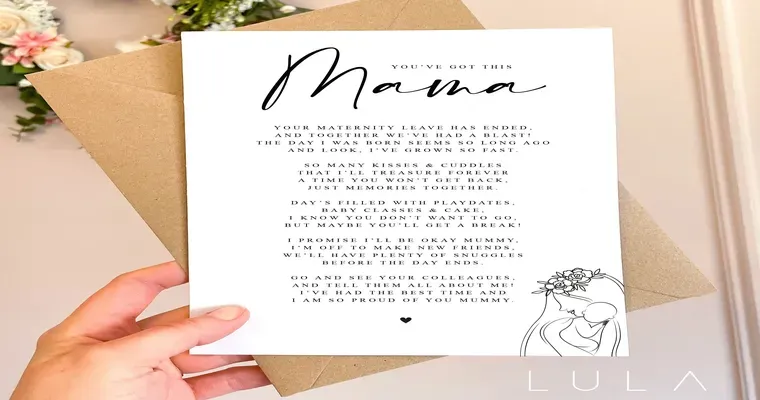 YOU'VE GOT THIS
Mama
YOUR MATERNITY LEAVE HAS ENDED,
AND TOGETHER WE'VE HAD A BLAST!
THE DAY I WAS BORN SEEMS SO LONG AGO
AND LOOK, I'VE GROWN SO FAST.
SO MANY KISSES & CUDDLES
THAT I'LL TREASURE FOREVER
A TIME YOU WON'T GET BACK,
JUST MEMORIES TOGETHER.
DAY'S FILLED WITH PLAYDATES,
BABY CLASSES & CAKE,
I KNOW YOU DON'T WANT TO GO,
BUT MAYBE YOU'LL GET A BREAK!
I PROMISE I'LL BE OKAY MUMMY,
I'M OFF TO MAKE NEW FRIENDS,
WE'LL HAVE PLENTY OF SNUGGLES
BEFORE THE DAY ENDS.
GO AND SEE YOUR COLLEAGUES,
AND TELL THEM ALL ABOUT ME!
I'VE HAD THE BEST TIME AND
I AM SO PROUD OF YOU MUMMY.
LULA